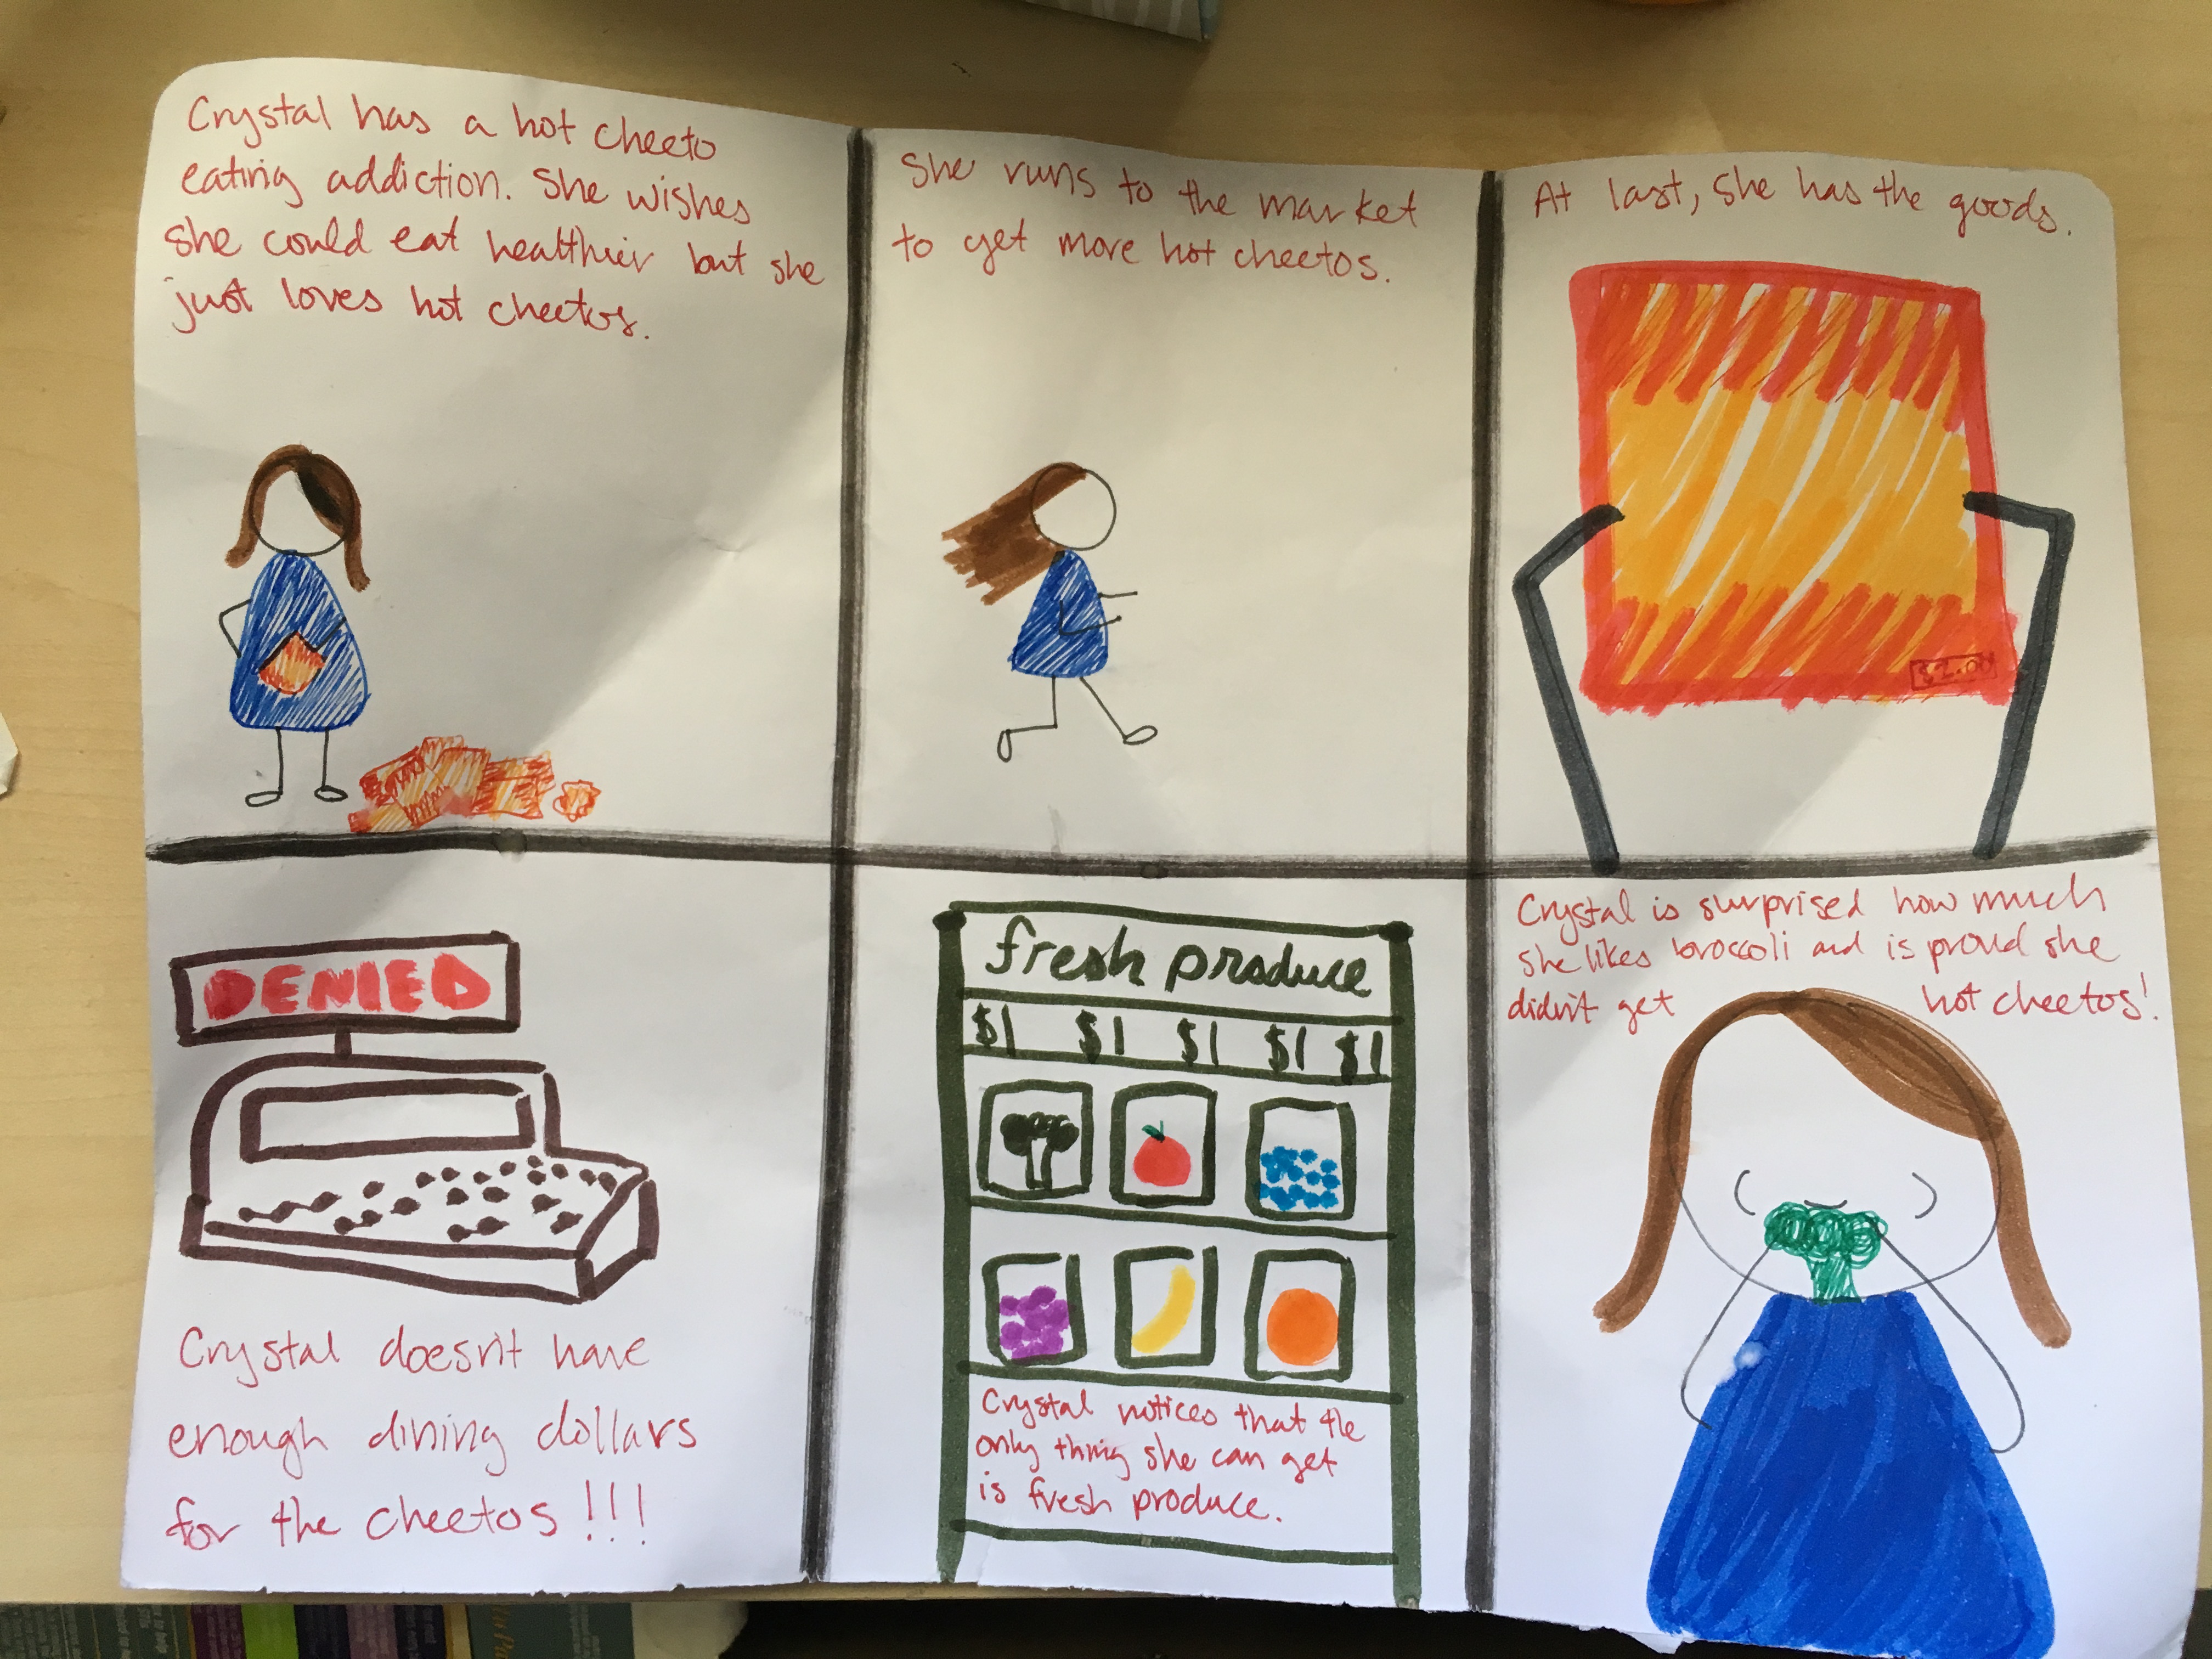 Crystal has a hot cheeto
eating addiction. She wishes
she could eat healthier but she
just loves hot cheetos.
She runs to the market
to get more hot cheetos.
At last, she has the goods.
DENIED
Crystal doesn't have
enough dining dollars
for the cheetos!!!
fresh produce
$1 $1 $1 $1 $1
Crystal notices that the
only thing she can get
is fresh produce.
Crystal is surprised how much
she likes broccoli and is proud she
didn't get hot cheetos!